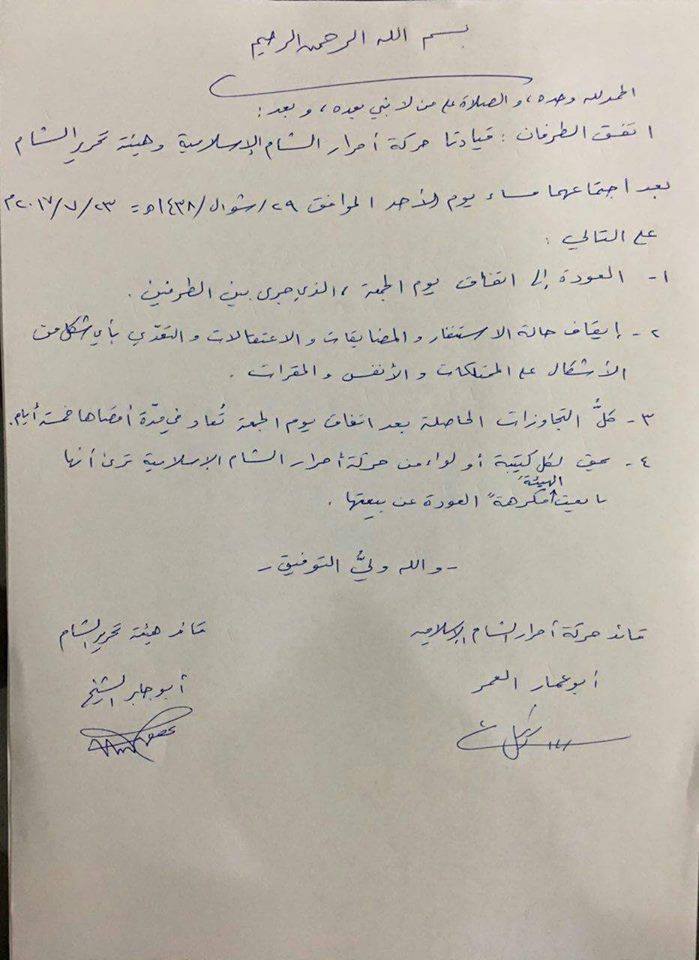 بسم الله الرحمن الرحيم
الحمد لله وحده، والصلاة على من لا نبي بعده، وبعد:
اتفق الطرفان: قيادتا حركة أحرار الشام الإسلامية وهيئة تحرير الشام
بعد اجتماعهما مساء يوم الأحد الموافق ٢٩/شوال/١٤٣٨هـ = ٢٠١٧/٧/٢٣م
على التالي:
١- العودة إلى اتفاق يوم الجمعة، الذي جرى بين الطرفين.
٢- إيقاف حالة الاستنفار والمضايقات والاعتقالات والتعدّي بأي شكل من
الأشكال على الممتلكات والأنفس والمقرات.
٣- كلُّ التجاوزات الحاصلة بعد اتفاق يوم الجمعة تُعاد في مدّة أقصاها خمسة أيام.
٤- يحق لكل كتيبة أو لواء من حركة أحرار الشام الإسلامية ترى أنها
بايعت الهيئة مكرهةً العودة عن بيعتها.
- والله وليُّ التوفيق -
قائد حركة أحرار الشام الإسلامية
قائد هيئة تحرير الشام
أبو عمار العمر
أبو جابر الشيخ